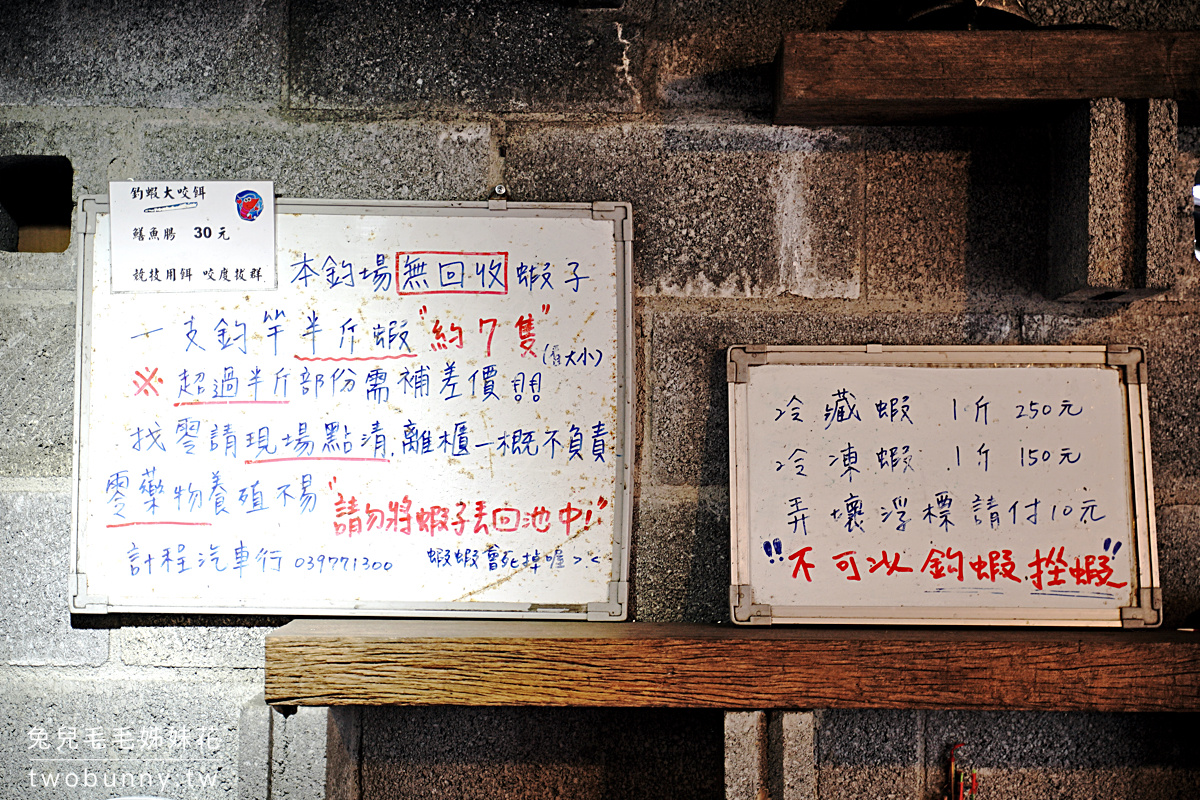 釣蝦大咬餌
鱔魚腸 30元
競技用餌 咬度拔群
本釣場無回收蝦子
一支釣竿半斤蝦"約7隻"(看大小)
※超過半斤部份需補差價!!
找零請現場點清,離櫃一概不負責
零藥物養殖不易
"請勿將蝦子丟回池中!"
計程汽車行 039771300 蝦蝦會死掉喔><
冷藏蝦 1斤 250元
冷凍蝦 1斤 150元
弄壞浮標請付10元
"不可以釣蝦.挫蝦"
兔兒毛毛姊妹花
twobunny.tw